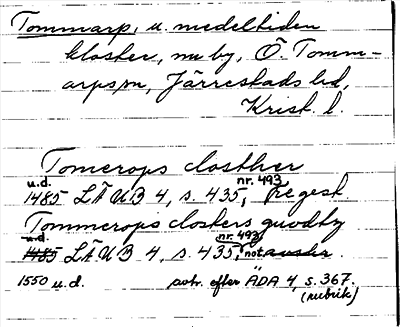 Tommarp, u. medeltiden
kloster, nu by, Ö. Tomm-
arps sn, Järrestads hd,
Krist. l.
Tomerops closther
u.d. nr. 493,
1485 LÄUB 4, s. 435, regest
Tommerops closters guodtz
u.d. nr. 493
1485 LÄUB 4, s. 435, not
1550 u.d. avtr. efter ÄDA 4, s. 367.
(rubrik)